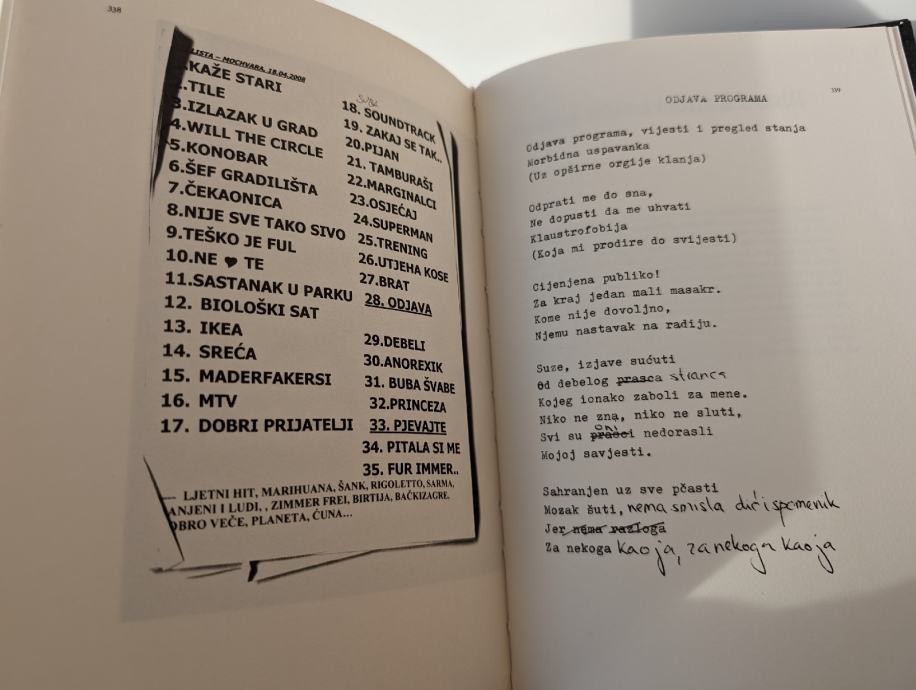 338
LISTA – MOCHVARA, 18.04.2008
.KAŽE STARI
.TILE
3.IZLAZAK U GRAD
4.WILL THE CIRCLE
5.KONOBAR
6.ŠEF GRADILIŠTA
7.ČEKAONICA
8.NIJE SVE TAKO SIVO
9.TEŠKO JE FUL
10.NE ♥ TE
11.SASTANAK U PARKU
12. BIOLOŠKI SAT
13. IKEA
14. SREĆA
15. MADERFAKERSI
16. MTV
17. DOBRI PRIJATELJI
18. SOUNDTRACK
19. ZAKAJ SE TAK..
20.PIJAN
21. TAMBURAŠI
22.MARGINALCI
23.OSJEĆAJ
24.SUPERMAN
25.TRENING
26.UTJEHA KOSE
27.BRAT
28. ODJAVA
29.DEBELI
30.ANOREXIK
31. BUBA ŠVABE
32.PRINCEZA
33. PJEVAJTE
34. PITALA SI ME
35. FUR IMMER..
– LJETNI HIT, MARIHUANA, ŠANK, RIGOLETTO, SARMA,
ANJENI I LUDI, , ZIMMER FREI, BIRTIJA, BAČKIZAGRE,
OBRO VEČE, PLANETA, ĆUNA...
339
ODJAVA PROGRAMA
Odjava programa, vijesti i pregled stanja
Morbidna uspavanka
(Uz opširne orgije klanja)
Odprati me do sna,
Ne dopusti da me uhvati
Klaustrofobija
(Koja mi prodire do svijesti)
Cijenjena publiko!
Za kraj jedan mali masakr.
Kome nije dovoljno,
Njemu nastavak na radiju.
Suze, izjave sućuti
Od debelog prasca stranca
Kojeg ionako zaboli za mene.
Niko ne zna, niko ne sluti,
Svi su prasci oni nedorasli
Mojoj savjesti.
Sahranjen uz sve pčasti
Mozak šuti, nema smisla dići spomenik
Jer nema razloga
Za nekoga kao ja, za nekoga kao ja